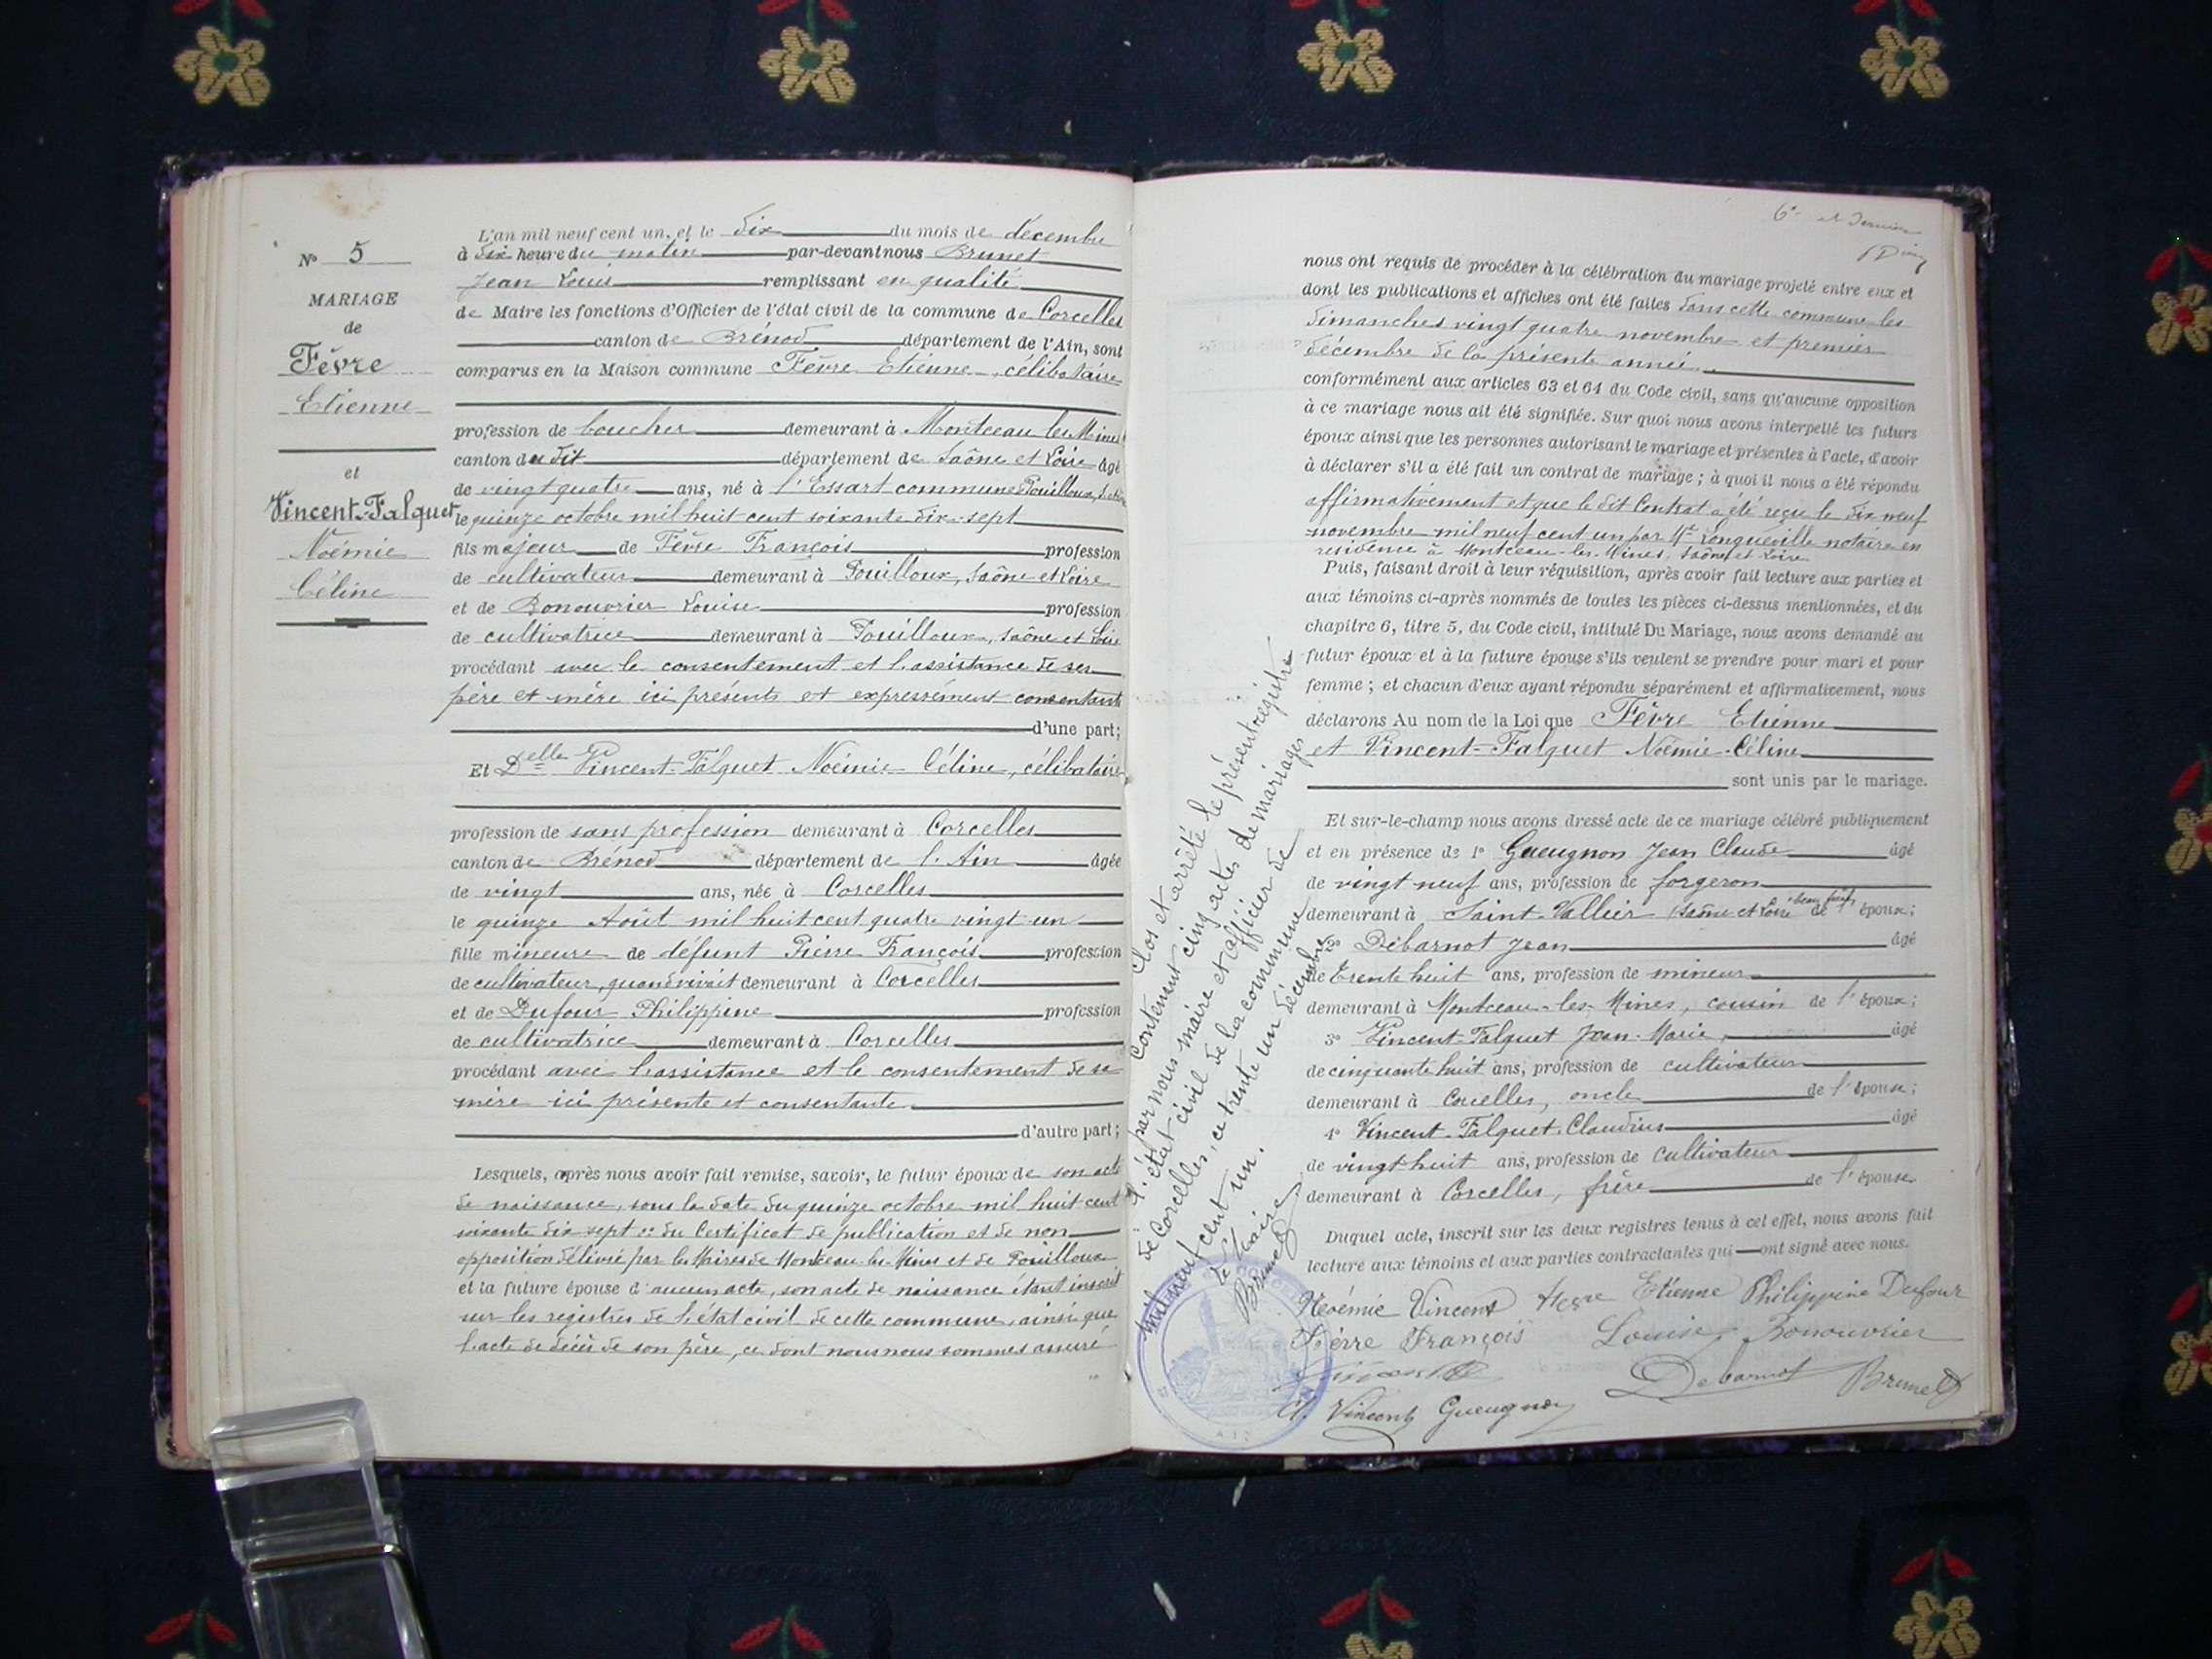 N° 5
MARIAGE
de
Fèvre
Etienne
et
Vincent-Falquet
Noémie
Céline
L'an mil neuf cent un, et le dix du mois de décembre
à dix heure du matin par-devant nous Brunet
Jean Louis remplissant en qualité
de Maire les fonctions d'Officier de l'état civil de la commune de Corcelles
canton de Brénod département de l'Ain, sont
comparus en la Maison commune Fèvre Etienne, célibataire
profession de boucher demeurant à Montceau les Mines
canton du dit département de Saône et Loire âgé
de vingt quatre ans, né à l'Essart commune Pouilloux,
le quinze octobre mil huit cent soixante dix-sept
fils majeur de Fèvre François profession
de cultivateur demeurant à Pouilloux, Saône et Loire
et de Bonouvrier Louise profession
de cultivatrice demeurant à Pouilloux, Saône et Loire
procédant avec le consentement et l'assistance de ses
père et mère ici présents et expressément consentants
d'une part;
Et Delle Vincent-Falquet Noémie Céline, célibataire
profession de sans profession demeurant à Corcelles
canton de Brénod département de l'Ain âgée
de vingt ans, née à Corcelles
le quinze Août mil huit cent quatre vingt un
fille mineure de défunt Pierre François profession
de cultivateur, quand vivait demeurant à Corcelles
et de Dufour Philippine profession
de cultivatrice demeurant à Corcelles
procédant avec l'assistance et le consentement de sa
mère ici présente et consentante
d'autre part;
Lesquels, après nous avoir fait remise, savoir, le futur époux de son acte
de naissance, sous la date du quinze octobre mil huit cent
soixante dix sept 2° du Certificat de publication et de non
opposition délivré par les Maires de Montceau-les-Mines et de Pouilloux
et la future épouse d'aucun acte, son acte de naissance étant inscrit
sur les registres de l'état civil de cette commune, ainsi que
l'acte de décès de son père, ce dont nous nous sommes assuré
6e et dernier
nous ont requis de procéder à la célébration du mariage projeté entre eux et
dont les publications et affiches ont été faites dans cette commune les
dimanches vingt quatre novembre et premier
décembre de la présente année
conformément aux articles 63 et 64 du Code civil, sans qu'aucune opposition
à ce mariage nous ait été signifiée. Sur quoi nous avons interpellé les futurs
époux ainsi que les personnes autorisant le mariage et présentes à l'acte, d'avoir
à déclarer s'il a été fait un contrat de mariage; à quoi il nous a été répondu
affirmativement et que le dit Contrat a été reçu le dix neuf
novembre mil neuf cent un par Me Longueville notaire en
résidence à Montceau-les-Mines, Saône et Loire
Puis, faisant droit à leur réquisition, après avoir fait lecture aux parties et
aux témoins ci-après nommés de toutes les pièces ci-dessus mentionnées, et du
chapitre 6, titre 5, du Code civil, intitulé Du Mariage, nous avons demandé au
futur époux et à la future épouse s'ils veulent se prendre pour mari et pour
femme; et chacun d'eux ayant répondu séparément et affirmativement, nous
déclarons Au nom de la Loi que Fèvre Etienne
et Vincent-Falquet Noémie-Céline
sont unis par le mariage.
Et sur-le-champ nous avons dressé acte de ce mariage célébré publiquement
et en présence de 1° Gueugnon Jean Claude âgé
de vingt neuf ans, profession de forgeron
demeurant à Saint-Vallier (Saône et Loire beau frère de l'époux;
2° Débarnot Jean âgé
de trente huit ans, profession de mineur
demeurant à Montceau-les-Mines, cousin de l'époux;
3° Vincent-Falquet Jean-Marie, âgé
de cinquante huit ans, profession de cultivateur
demeurant à Corcelles, oncle de l'épouse;
4° Vincent-Falquet Claudius âgé
de vingt-huit ans, profession de cultivateur
demeurant à Corcelles, frère de l'épouse.
Duquel acte, inscrit sur les deux registres tenus à cet effet, nous avons fait
lecture aux témoins et aux parties contractantes qui ont signé avec nous.
Noémie Vincent Etienne Philippine Dufour
François Louise Bonouvrier
Debarnot Brunet
Cl. Vincent Gueugnon
Clos et arrêté le présent registre
Contenant cinq actes de mariages
par nous maire et officier de
l'état civil de la commune
de Corcelles, ce trente un décembre
mil neuf cent un.
Le Maire
Brunet
AIN